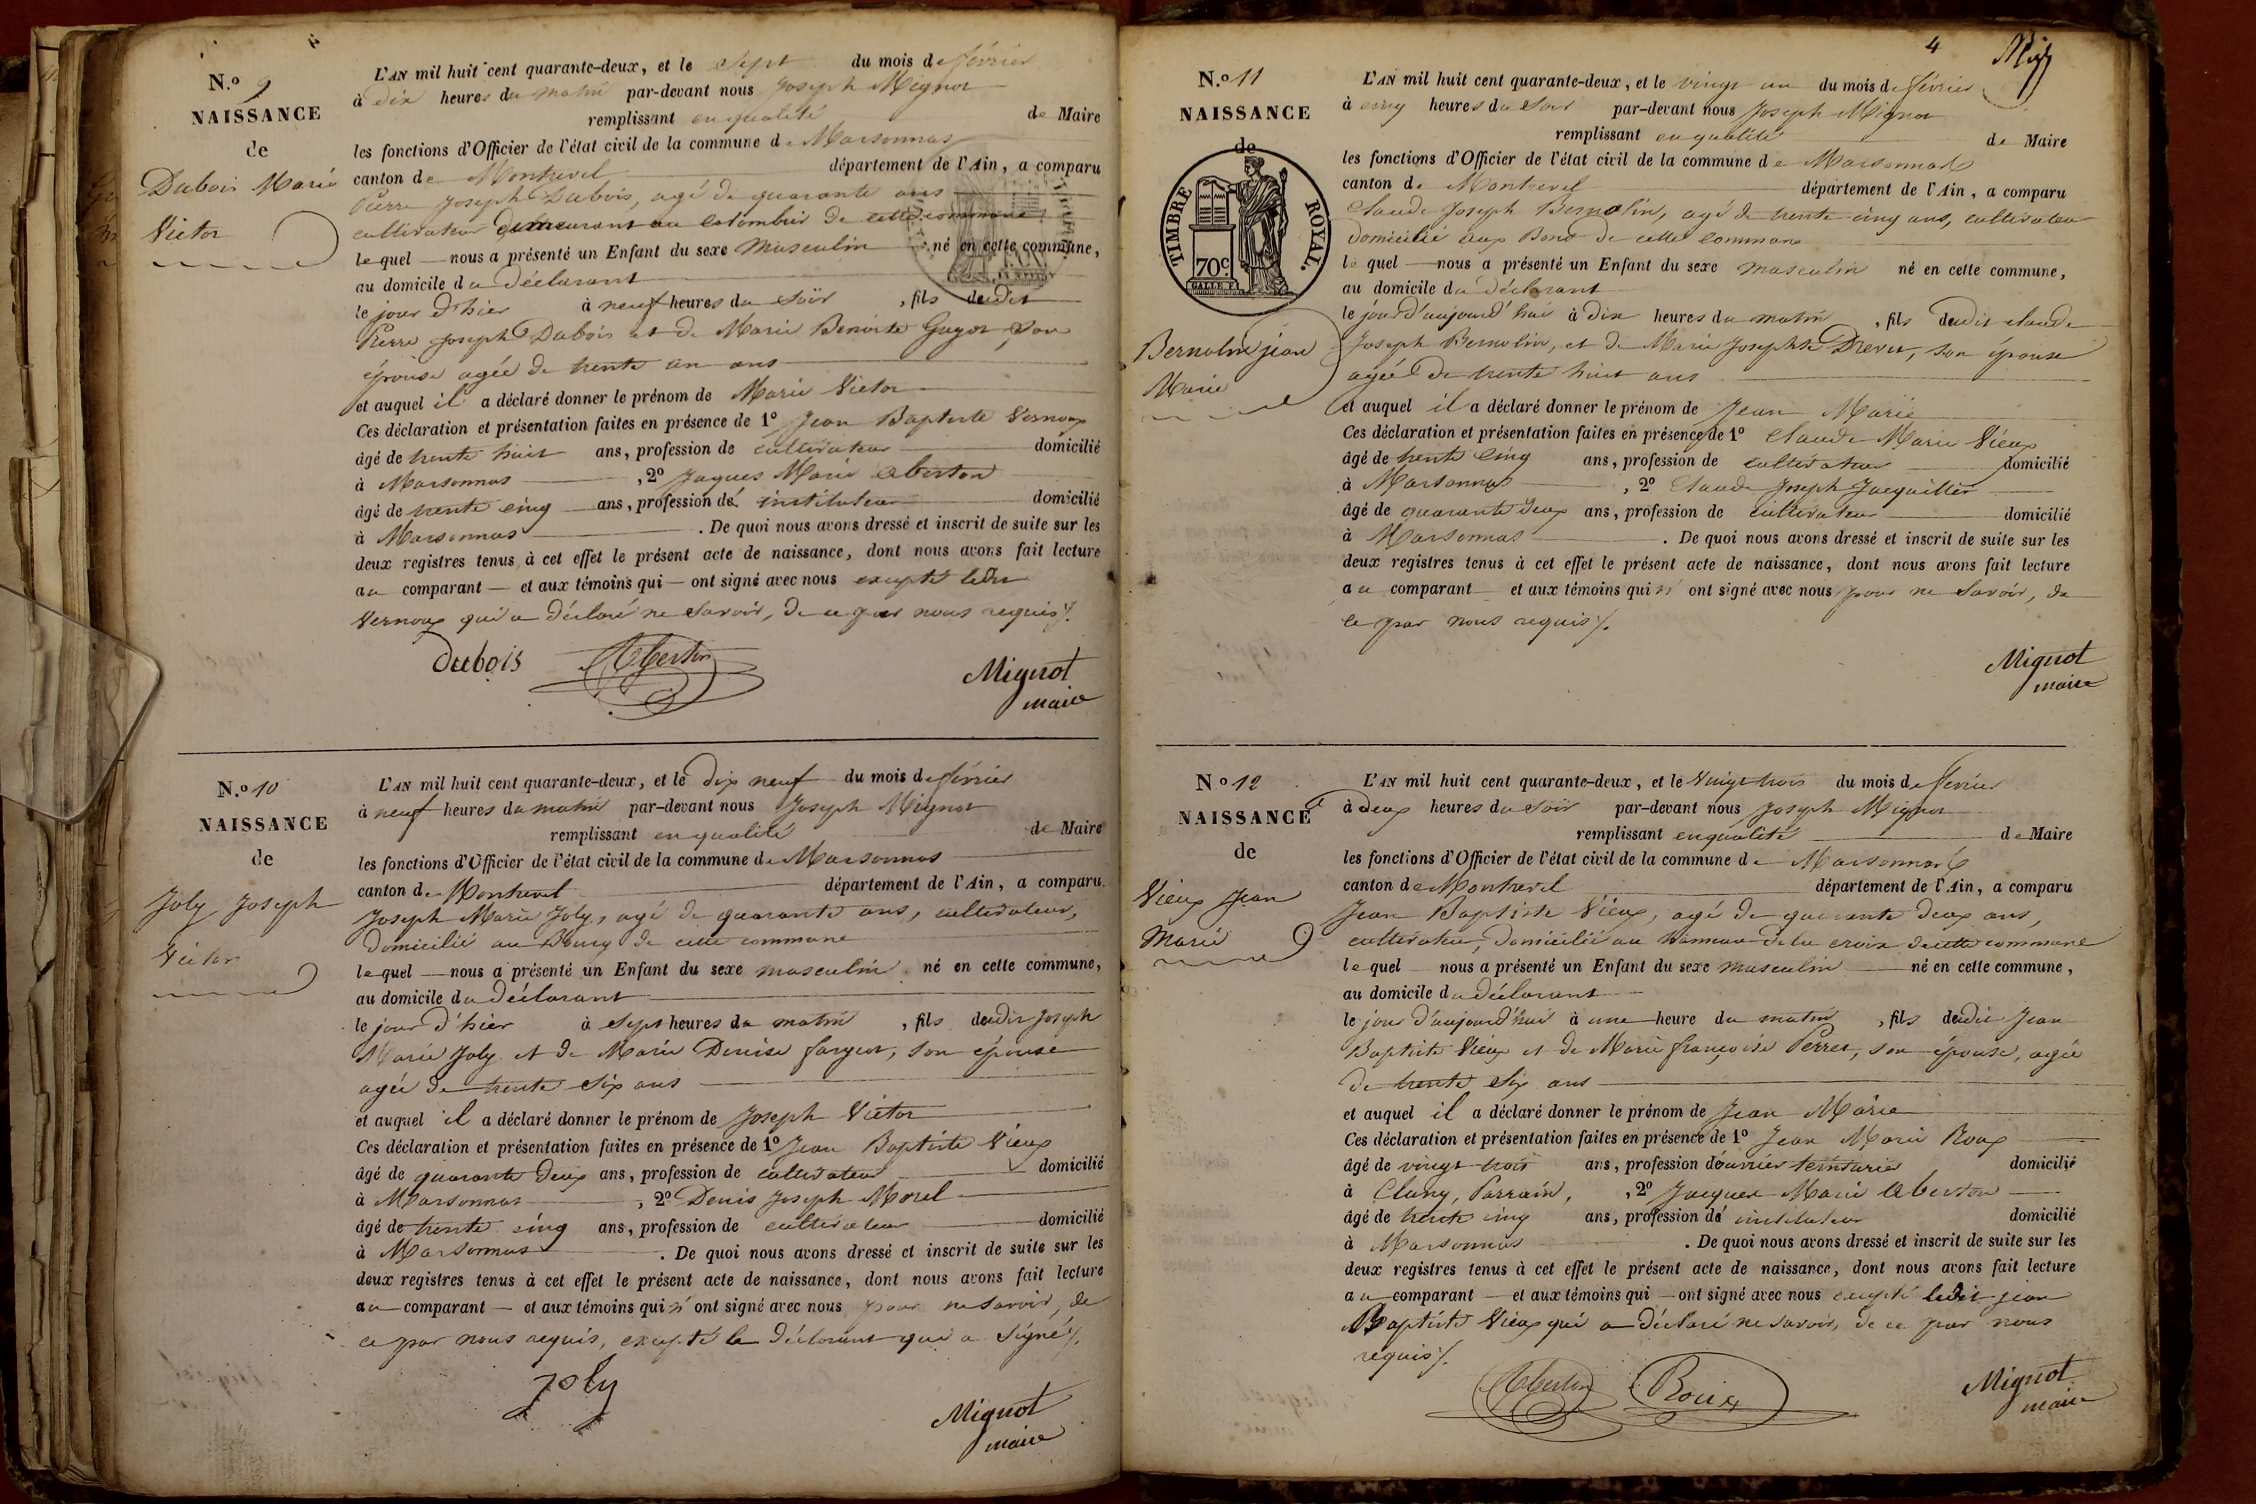 N.º 9
NAISSANCE
de
Dubois Marie
Victor
L'AN mil huit cent quarante-deux, et le sept du mois de février
à dix heures du matin par-devant nous Joseph Mignot
remplissant en qualité de Maire
les fonctions d'Officier de l'état civil de la commune de Marsonnas
canton de Montrevel département de l'Ain, a comparu
Pierre Joseph Dubois, agé de quarante ans
cultivateur demeurant au Colombier de cette commune
lequel nous a présenté un Enfant du sexe masculin né en cette commune,
au domicile du déclarant
le jour d'hier à neuf heures du soir, fils dudit
Pierre Joseph Dubois et de Marie Benoite Guyot, son
épouse agée de trente un ans
et auquel il a déclaré donner le prénom de Marie Victor
Ces déclaration et présentation faites en présence de 1º Jean Baptiste Vernoux
âgé de trente huit ans, profession de cultivateur domicilié
à Marsonnas, 2º Jaques Marie Oberton
âgé de trente cinq ans, profession d' instituteur domicilié
à Marsonnas. De quoi nous avons dressé et inscrit de suite sur les
deux registres tenus à cet effet le présent acte de naissance, dont nous avons fait lecture
au comparant et aux témoins qui ont signé avec nous excepté ledit
Vernoux qui a déclaré ne savoir, de ce par nous requis ⁒.
Dubois
Mignot
maire
N.º 10
NAISSANCE
de
Joly Joseph
Victor
L'AN mil huit cent quarante-deux, et le dix neuf du mois de février
à neuf heures du matin par-devant nous Joseph Mignot
remplissant en qualité de Maire
les fonctions d'Officier de l'état civil de la commune de Marsonnas
canton de Montrevel département de l'Ain, a comparu
Joseph Marie Joly, agé de quarante ans, cultivateur,
domicilié au Bourg de cette commune
lequel nous a présenté un Enfant du sexe masculin né en cette commune,
au domicile du déclarant
le jour d'hier à sept heures du matin, fils dudit Joseph
Marie Joly et de Marie Denise fargeot, son épouse
agée de trente six ans
et auquel il a déclaré donner le prénom de Joseph Victor
Ces déclaration et présentation faites en présence de 1º Jean Baptiste Vieux
âgé de quarante deux ans, profession de cultivateur domicilié
à Marsonnas, 2º Denis Joseph Morel
âgé de trente cinq ans, profession de cultivateur domicilié
à Marsonnas. De quoi nous avons dressé et inscrit de suite sur les
deux registres tenus à cet effet le présent acte de naissance, dont nous avons fait lecture
au comparant et aux témoins qui n' ont signé avec nous pour ne savoir, de
ce par nous requis, excepté le déclarant qui a signé ⁒.
Joly
Mignot
maire
4
N.º 11
NAISSANCE
de
TIMBRE ROYAL.
70c
Bernolin jean
Marie
L'AN mil huit cent quarante-deux, et le vingt un du mois de février
à cinq heures du soir par-devant nous Joseph Mignot
remplissant en qualité de Maire
les fonctions d'Officier de l'état civil de la commune de Marsonnas
canton de Montrevel département de l'Ain, a comparu
Claude Joseph Bernolin, agé de trente cinq ans, cultivateur
domicilié aux de cette commune
lequel nous a présenté un Enfant du sexe masculin né en cette commune,
au domicile du déclarant
le jour d'aujourd'hui à dix heures du matin, fils dudit claude
Joseph Bernolin, et de Marie Josephte Drevet, son épouse
agée de trente huit ans
et auquel il a déclaré donner le prénom de Jean Marie
Ces déclaration et présentation faites en présence de 1º Claude Marie Vieux
âgé de trente cinq ans, profession de cultivateur domicilié
à Marsonnas, 2º Claude Joseph Jacquillier
âgé de quarante deux ans, profession de cultivateur domicilié
à Marsonnas. De quoi nous avons dressé et inscrit de suite sur les
deux registres tenus à cet effet le présent acte de naissance, dont nous avons fait lecture
au comparant et aux témoins qui n' ont signé avec nous pour ne savoir, de
ce par nous requis ⁒.
Mignot
maire
Nº 12
NAISSANCE
de
Vieux Jean
Marie
L'AN mil huit cent quarante-deux, et le vingt trois du mois de février
à deux heures du soir par-devant nous Joseph Mignot
remplissant en qualité de Maire
les fonctions d'Officier de l'état civil de la commune de Marsonnas
canton de Montrevel département de l'Ain, a comparu
Jean Baptiste Vieux, agé de quarante deux ans,
cultivateur, domicilié au hameau de la croix de cette commune
lequel nous a présenté un Enfant du sexe masculin né en cette commune,
au domicile du déclarant
le jour d'aujourd'hui à une heure du matin, fils dudit Jean
Baptiste Vieux et de Marie françoise Perret, son épouse, agée
de trente six ans
et auquel il a déclaré donner le prénom de Jean Marie
Ces déclaration et présentation faites en présence de 1º Jean Marie Roux
âgé de vingt trois ans, profession d'ouvrier teinturier domicilié
à Cluny, Parrain, 2º Jacques Marie Oberton
âgé de trente cinq ans, profession d' instituteur domicilié
à Marsonnas. De quoi nous avons dressé et inscrit de suite sur les
deux registres tenus à cet effet le présent acte de naissance, dont nous avons fait lecture
au comparant et aux témoins qui ont signé avec nous excepté ledit jean
Baptiste Vieux qui a déclaré ne savoir, de ce par nous
requis ⁒.
Roux
Mignot
maire